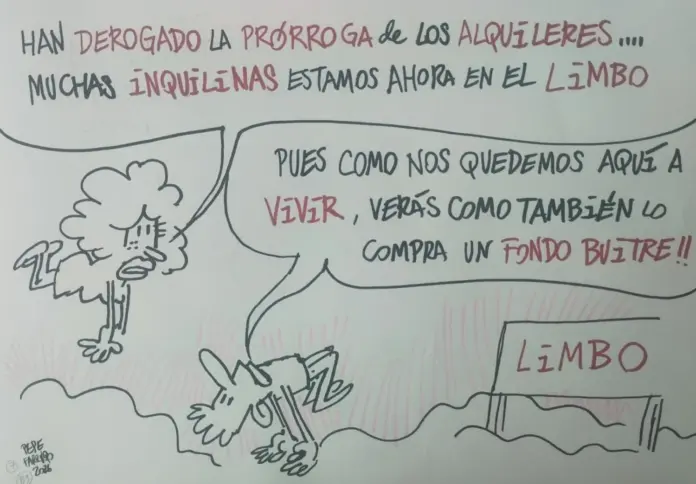 HAN DEROGADO LA PRÓRROGA de LOS ALQUILERES....
MUCHAS INQUILINAS ESTAMOS AHORA EN EL LIMBO
PUES COMO NOS QUEDEMOS AQUÍ A
VIVIR, VERÁS COMO TAMBIÉN LO
COMPRA UN FONDO BUITRE!!
LIMBO
PEPE